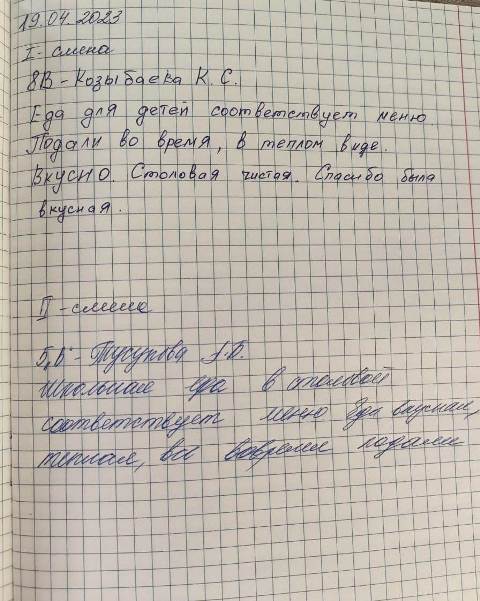 19.04.2023
I-смена
8В-Козыбаева К.С.
Еда для детей соответствует меню
Подали во время, в теплом виде.
Вкусно. Столовая чистая. Спасибо была
вкусная.
II-смена
5"В"-Тусупова Г.Б.
Школьная еда в столовой
соответствует меню Еда вкусная,
теплая, всё вовремя подали